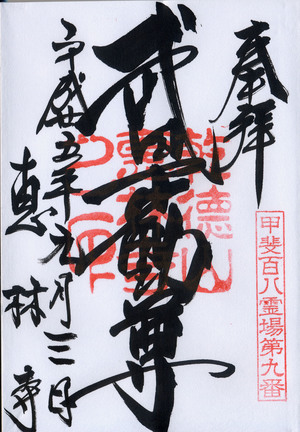 奉拝
甲斐百八霊場第九番
乾徳山
武田不動尊
平成廿五年元月三日
恵林寺